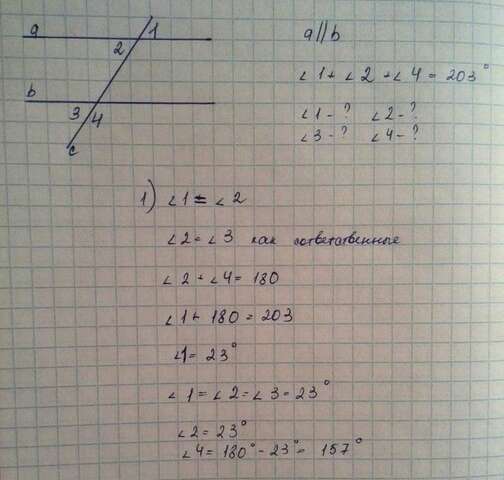 a
1
2
b
3
4
c
a∥b
∠1+∠2+∠4=203°
∠1-? ∠2-?
∠3-? ∠4-?
1) ∠1=∠2
∠2=∠3 как соответственные
∠2+∠4=180
∠1+180=203
∠1=23°
∠1=∠2=∠3=23°
∠2=23°
∠4=180°-23°=157°